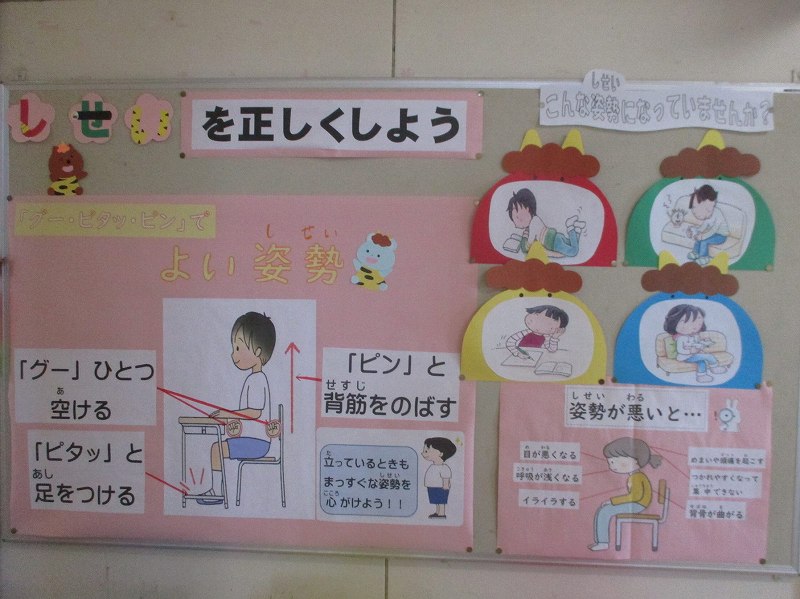 しせい を正しくしよう
しせい
こんな姿勢になっていませんか?
「グー・ピタッ・ピン」で
しせい
よい姿勢
「グー」ひとつ
あ
空ける
「ピタッ」と
あし
足をつける
「ピン」と
せすじ
背筋をのばす
た
立っているときも
しせい
まっすぐな姿勢を
こころ
心がけよう!!
しせい わる
姿勢が悪いと…
め わる
目が悪くなる
こきゅう あさ
呼吸が浅くなる
イライラする
めまいや頭痛を起こす
つかれやすくなって
集中できない
背骨が曲がる